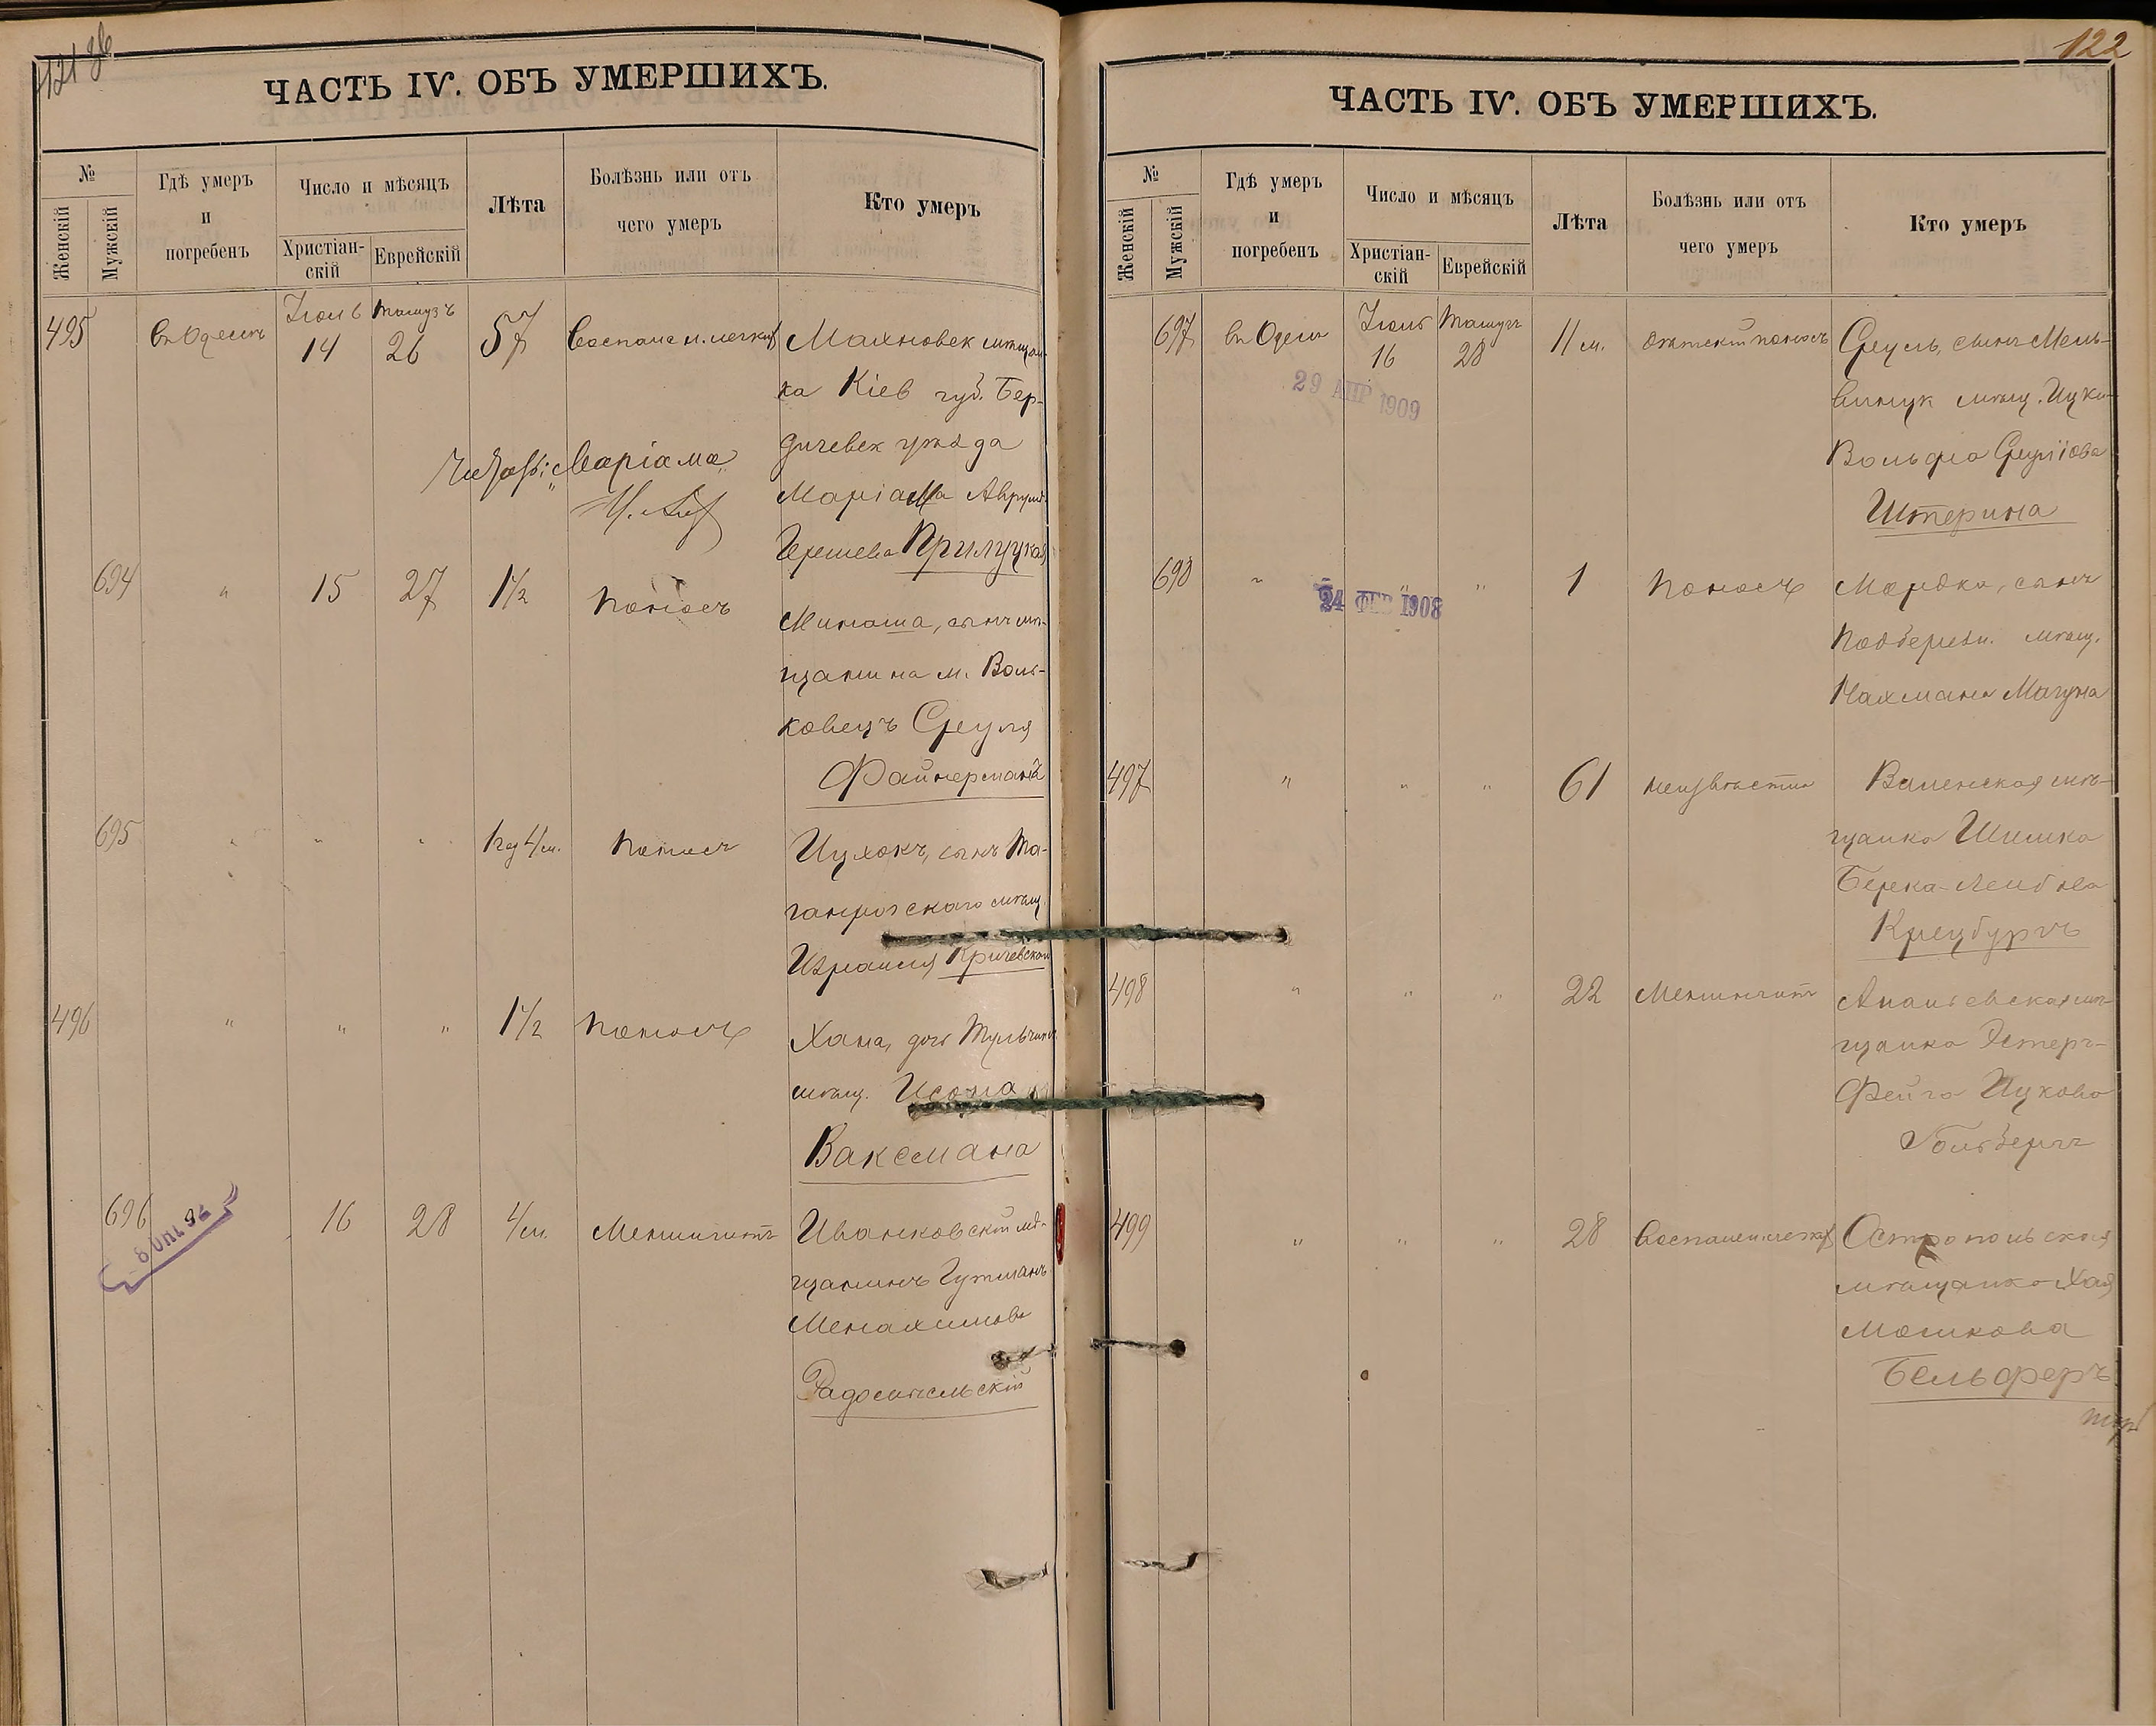 121 об
ЧАСТЬ IV. ОБЪ УМЕРШИХЪ.
№
Женскій
Мужскій
Гдѣ умеръ
и
погребенъ
Число и мѣсяцъ
Христіан-
скій
Еврейскій
Лѣта
Болѣзнь или отъ
чего умеръ
Кто умеръ
495 въ Одессѣ Іюль 14 Тамузъ 26 57 Воспален. легких Махновск мѣщан-
ка Кіев губ. Бер-
дичевск уѣзда
Маріама
Маріама Аврумъ-
Гершева Прилуцкая
694 " 15 27 1½ Поносъ
Минаша, сынъ мѣ-
щанина м. Воль-
ковецъ Сруля
Файнермана
695 " " " 1 год 4 м. Поносъ Ицхокъ, сынъ Та-
ганрогскаго мѣщ.
Израиля Кричевскаго
496 " " " 1½ Поносъ Хана, дочь Тульчинс
мѣщ.
Ваксмана
696 16 28 4 м. Менингитъ Иванковскій мѣ-
щанинъ Гутманъ
Менахимовъ
Радомысльскій
122
ЧАСТЬ IV. ОБЪ УМЕРШИХЪ.
№
Женскій
Мужскій
Гдѣ умеръ
и
погребенъ
Число и мѣсяцъ
Христіан-
скій
Еврейскій
Лѣта
Болѣзнь или отъ
чего умеръ
Кто умеръ
697 въ Одессѣ Іюль 16 Тамузъ 28 11 м. дѣтскій поносъ Сруль, сынъ Мель-
мѣщ. Ицка-
Вольфа Срулiова
Штерина
29 АПР 1909
698 " " " 1 Поносъ Мордко, сынъ
24 ФЕВ 1908
мѣщ.
Нахмана Магуна
497 " " " 61 неизвѣстно Виленская мѣ-
щанка Шимка
Берека-Лейбова
Крецбургъ
498 " " " 22 Менингитъ Ананьевская мѣ-
щанка Эстеръ-
Фейга Ицкова
Гольбергъ
499 " " " 28 Воспален. легких Остропольская
мѣщанка Хая
Мошкова
Бельферъ